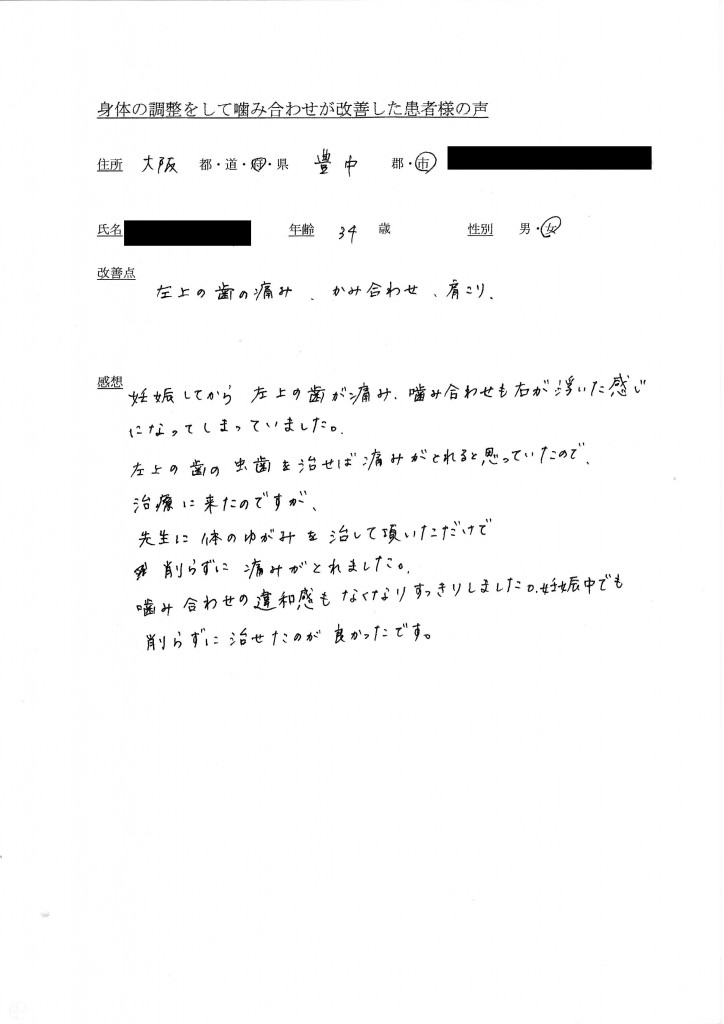 身体の調整をして噛み合わせが改善した患者様の声
住所 大阪 都・道・府・県 豊中 郡・市
氏名 年齢 34 歳 性別 男・女
改善点
左上の歯の痛み、かみ合わせ、肩こり、
感想
妊娠してから 左上の歯が痛み、噛み合わせも右が浮いた感じ
になってしまっていました。
左上の歯の虫歯を治せば痛みがとれると思っていたので、
治療に来たのですが、
先生に体のゆがみを治して頂いただけで
削らずに痛みがとれました。
噛み合わせの違和感もなくなりすっきりしました。妊娠中でも
削らずに治せたのが良かったです。